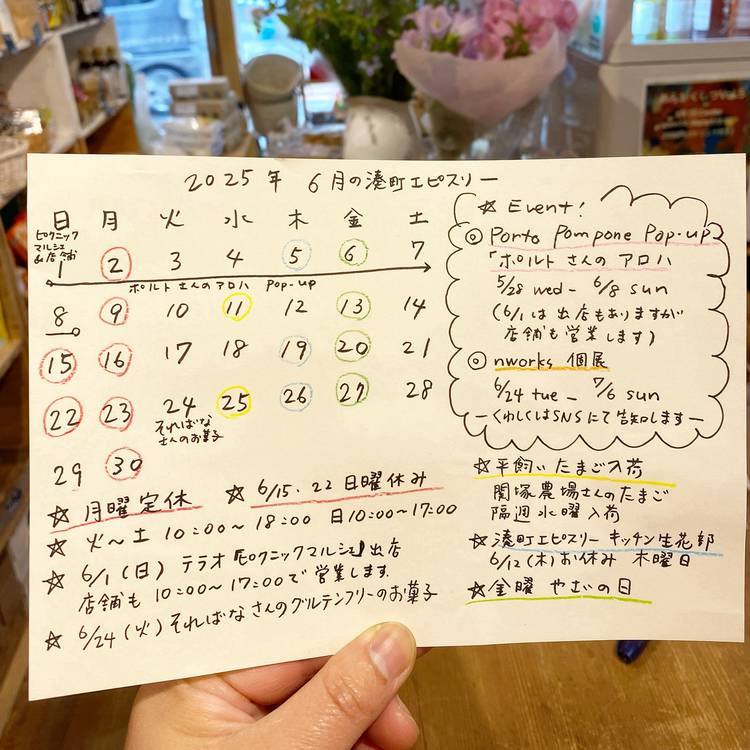 2025年 6月の湊町エピスリー
日 月 火 水 木 金 土
ピクニック
マルシェ
&店舗
1 2 3 4 5 6 7
ポルトさんのアロハ Pop-up
8 9 10 11 12 13 14
15 16 17 18 19 20 21
22 23 24 25 26 27 28
そればな
さんのお菓子
29 30
☆ 月曜定休 ☆ 6/15.22 日曜休み
☆ 火〜土 10:00〜18:00 日10:00〜17:00
☆ 6/1(日) テラオ「ピクニックマルシェ」出店
店舗も 10:00〜17:00で営業します.
☆ 6/24(火)そればなさんのグルテンフリーのお菓子
☆ Event!
◎ Porto Pompone Pop-up
「ポルトさんのアロハ
5/28 wed - 6/8 sun
(6/1は出店もありますが
店舗も営業します)
◎ nworks 個展
6/24 tue - 7/6 sun
—くわしくはSNSにて告知します—
☆平飼いたまご入荷
関塚農場さんのたまご
隔週水曜入荷
☆湊町エピスリー キッチン生花部
6/12(木)お休み 木曜日
☆金曜 やさいの日